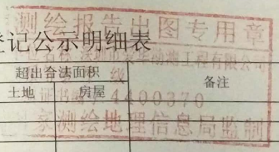 测绘报告出图专用章
登记公示明细表
工程有限公司
超出合法面积
备注
土地 房屋
线
证书编号 4400370
测绘地理信息局监制